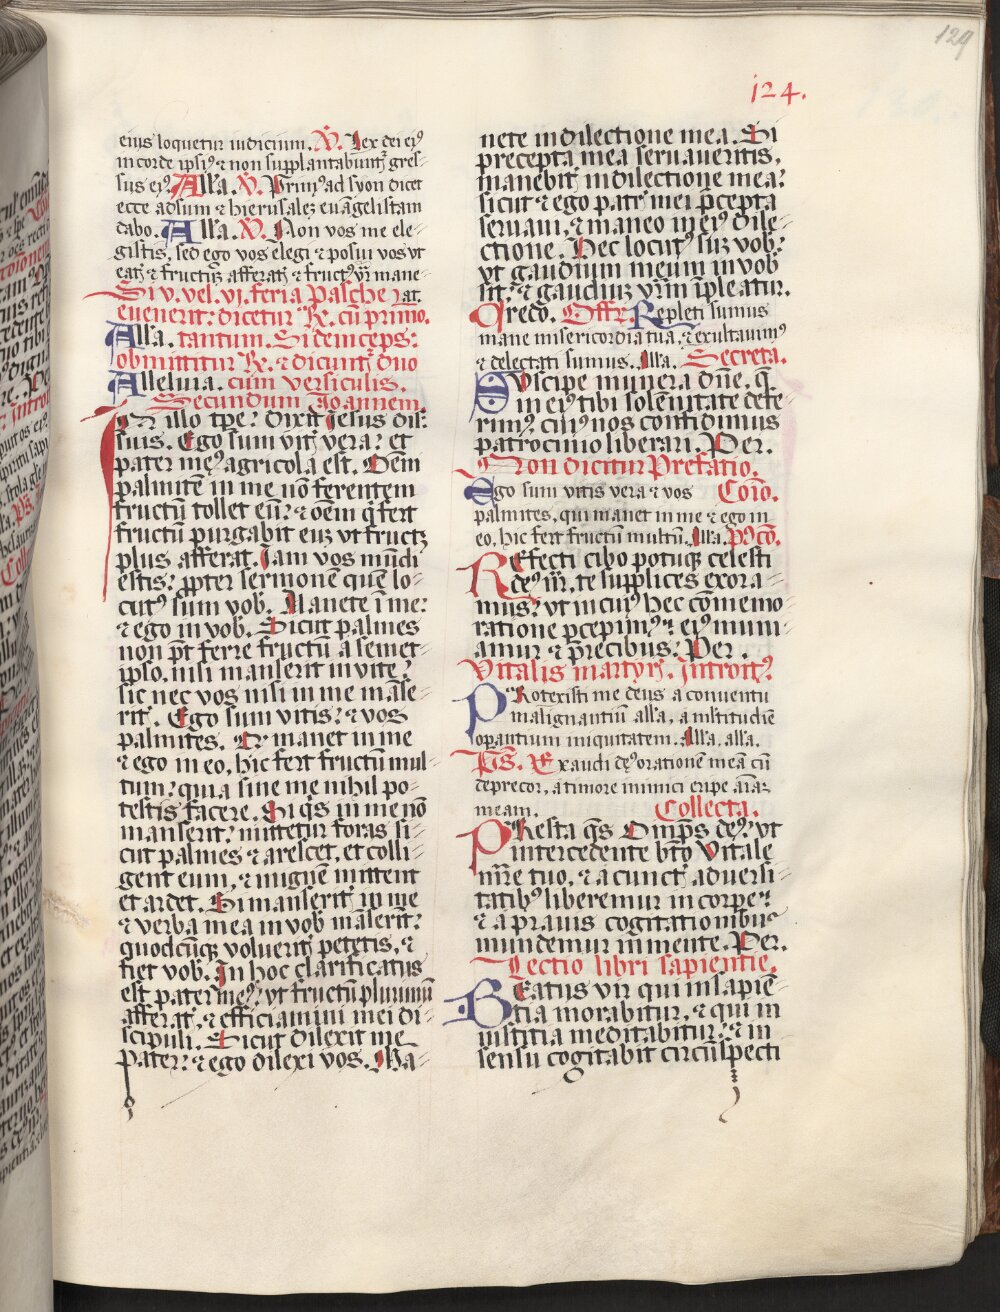 129
124.
eius loquetur iudicium. V. Lex dei ei⁹
in corde ipsi⁹ ⁊ non supplantabunt᷑ gres-
sus ei⁹. Alľa. V. Prim⁹ ad syon dicet
ecce adsum ⁊ hierusalez euāgelistam
dabo. Alľa. V. Non vos me ele-
gistis, sed ego vos elegi ⁊ posui vos vt
eat᷑ ⁊ fructuz afferat᷑ ⁊ fruct⁹ vr̄ mane-
Si v. vel. vj. feria Pasche at.
euenerit: dicetur R. cū primo.
Alľa. tantum. Si deinceps:
obmittitur R. ⁊ dicunt᷑ duo
Alleluia. cum versiculis.
Secundum Joannem
IN illo tpe: Dixit Jesus dis-
suis. Ego sum vit᷑ vera: et
pater me⁹ agricola est. Oēm
palmitē in me nō ferentem
fructū tollet eū: ⁊ oēm q̄ fert
fructū purgabit euz vt fructz
plus afferat. Jam vos mūdi
estis: ꝓpter sermonē quē lo-
cut⁹ sum vob᷑. Manete ī me:
⁊ ego in vob. Sicut palmes
non pt̄ ferre fructū a semet-
ipso, nisi manserit in vite:
sic nec vos nisi in me māse-
rit᷑. Ego sum vitis: ⁊ vos
palmites. Qr manet in me
⁊ ego in eo, hic fert fructum mul-
tum: quia sine me nihil po-
testis facere. Si q̄s in me nō
manserit: mittetur foras si-
cut palmes ⁊ arescet, et colli-
gent eum, ⁊ in ignē mittent
et ardet. Si manserit᷑ in me
⁊ verba mea in vob māserit:
quodcūq; volueritꝭ petetis, ⁊
fiet vob. In hoc clarificatus
est pater me⁹: vt fructū plurimū
afferat᷑, ⁊ efficiamini mei di-
scipuli. Sicut dilexit me
pater: ⁊ ego dilexi vos. Ma-
nete in dilectione mea. Si
precepta mea seruaueritis,
manebit᷑ in dilectione mea:
sicut ⁊ ego patr᷑ mei p̄cepta
seruaui, ⁊ maneo in ei⁹ dile-
ctione. Hec locut⁹ suz vob᷑:
vt gaudium meum in vob᷑
sit: ⁊ gaudiuz vrm̄ īpleatur.
Credo. Offr. Repleti sumus
mane misericordia tua, ⁊ exultauim⁹
⁊ delectati sumus. Alľa. Secreta.
Suscipe munera dn̄e, q̄
in ei⁹ tibi solēnitate defe-
rim⁹: cui⁹ nos confidimus
patrocinio liberari. Per.
Non dicitur Prefatio.
Ego sum vitis vera ⁊ vos Coīo.
palmites, qui manet in me ⁊ ego in
eo, hic fert fructū multū, Alľa. Pꝰcō.
Refecti cibo potuq; celesti
de⁹ nr̄, te supplices exora-
mus: vt in cui⁹ hec cōmemo-
ratione ꝑcepim⁹: ei⁹ muni-
amur ⁊ precibus: Per.
Vitalis martyr᷑. Introit⁹.
PRotexisti me deus a conuentu
malignantiū alľa, a mltitudiē
operantium iniquitatem. Alľa, alľa.
Pš. Exaudi de⁹ orationē meā cū
deprecor, a timore inimici eripe aīaz
meam. Collecta.
PResta q̄s Omp̄s de⁹: vt
intercedente btō Vitale
mr̄e tuo, ⁊ a cunct᷑ aduersi-
tatib⁹ liberemur in corpe:
⁊ a prauis cogitationibus
mundemur in mente. Per.
Lectio libri sapientie.
BEatus vir qui in sapiē-
tia morabitur, ⁊ qui in
iustitia meditabitur: ⁊ in
sensu cogitabit circūspecti